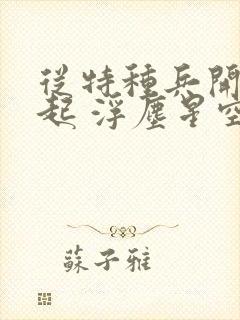 從特種兵開
起 浮塵星空
蘇子雅